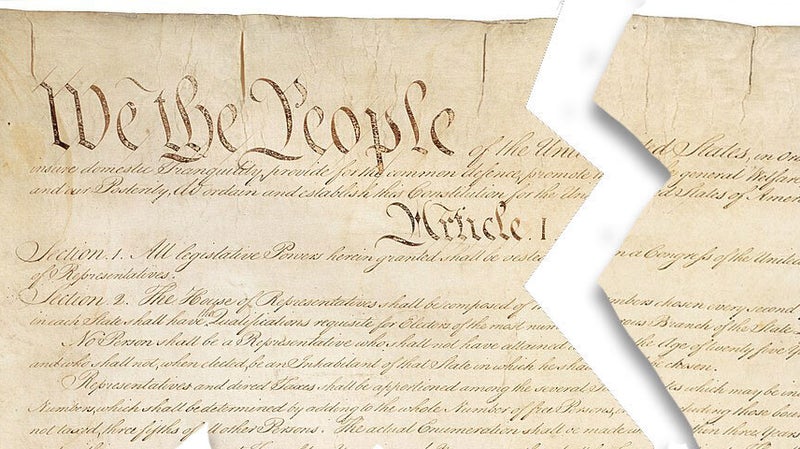 We the People of the Unit ed States, in Or
insure domestic Tranquility, provide for the common defence, promote general Welfare
and our Posterity, do ordain and establish this Constitution for the Un States of Amer
Article. I
Section. 1. All legislative Powers herein granted shall be vest in a Congress of the United
of Representatives.
Section. 2. The House of Representatives shall be composed of mbers chosen every second
in each State shall have the Qualifications requisite for Electors of the most num rous Branch of the State
No Person shall be a Representative who shall not have attained the Age of twenty five Y
and who shall not, when elected, be an Inhabitant of that State in which he sha be chosen.
Representatives and direct Taxes shall be apportioned among the several which may be in
Numbers, which shall be determined by adding to the whole Number of free Persons, luding those bou
not taxed, three fifths of all other Persons. The actual Enumeration shall be made three Years